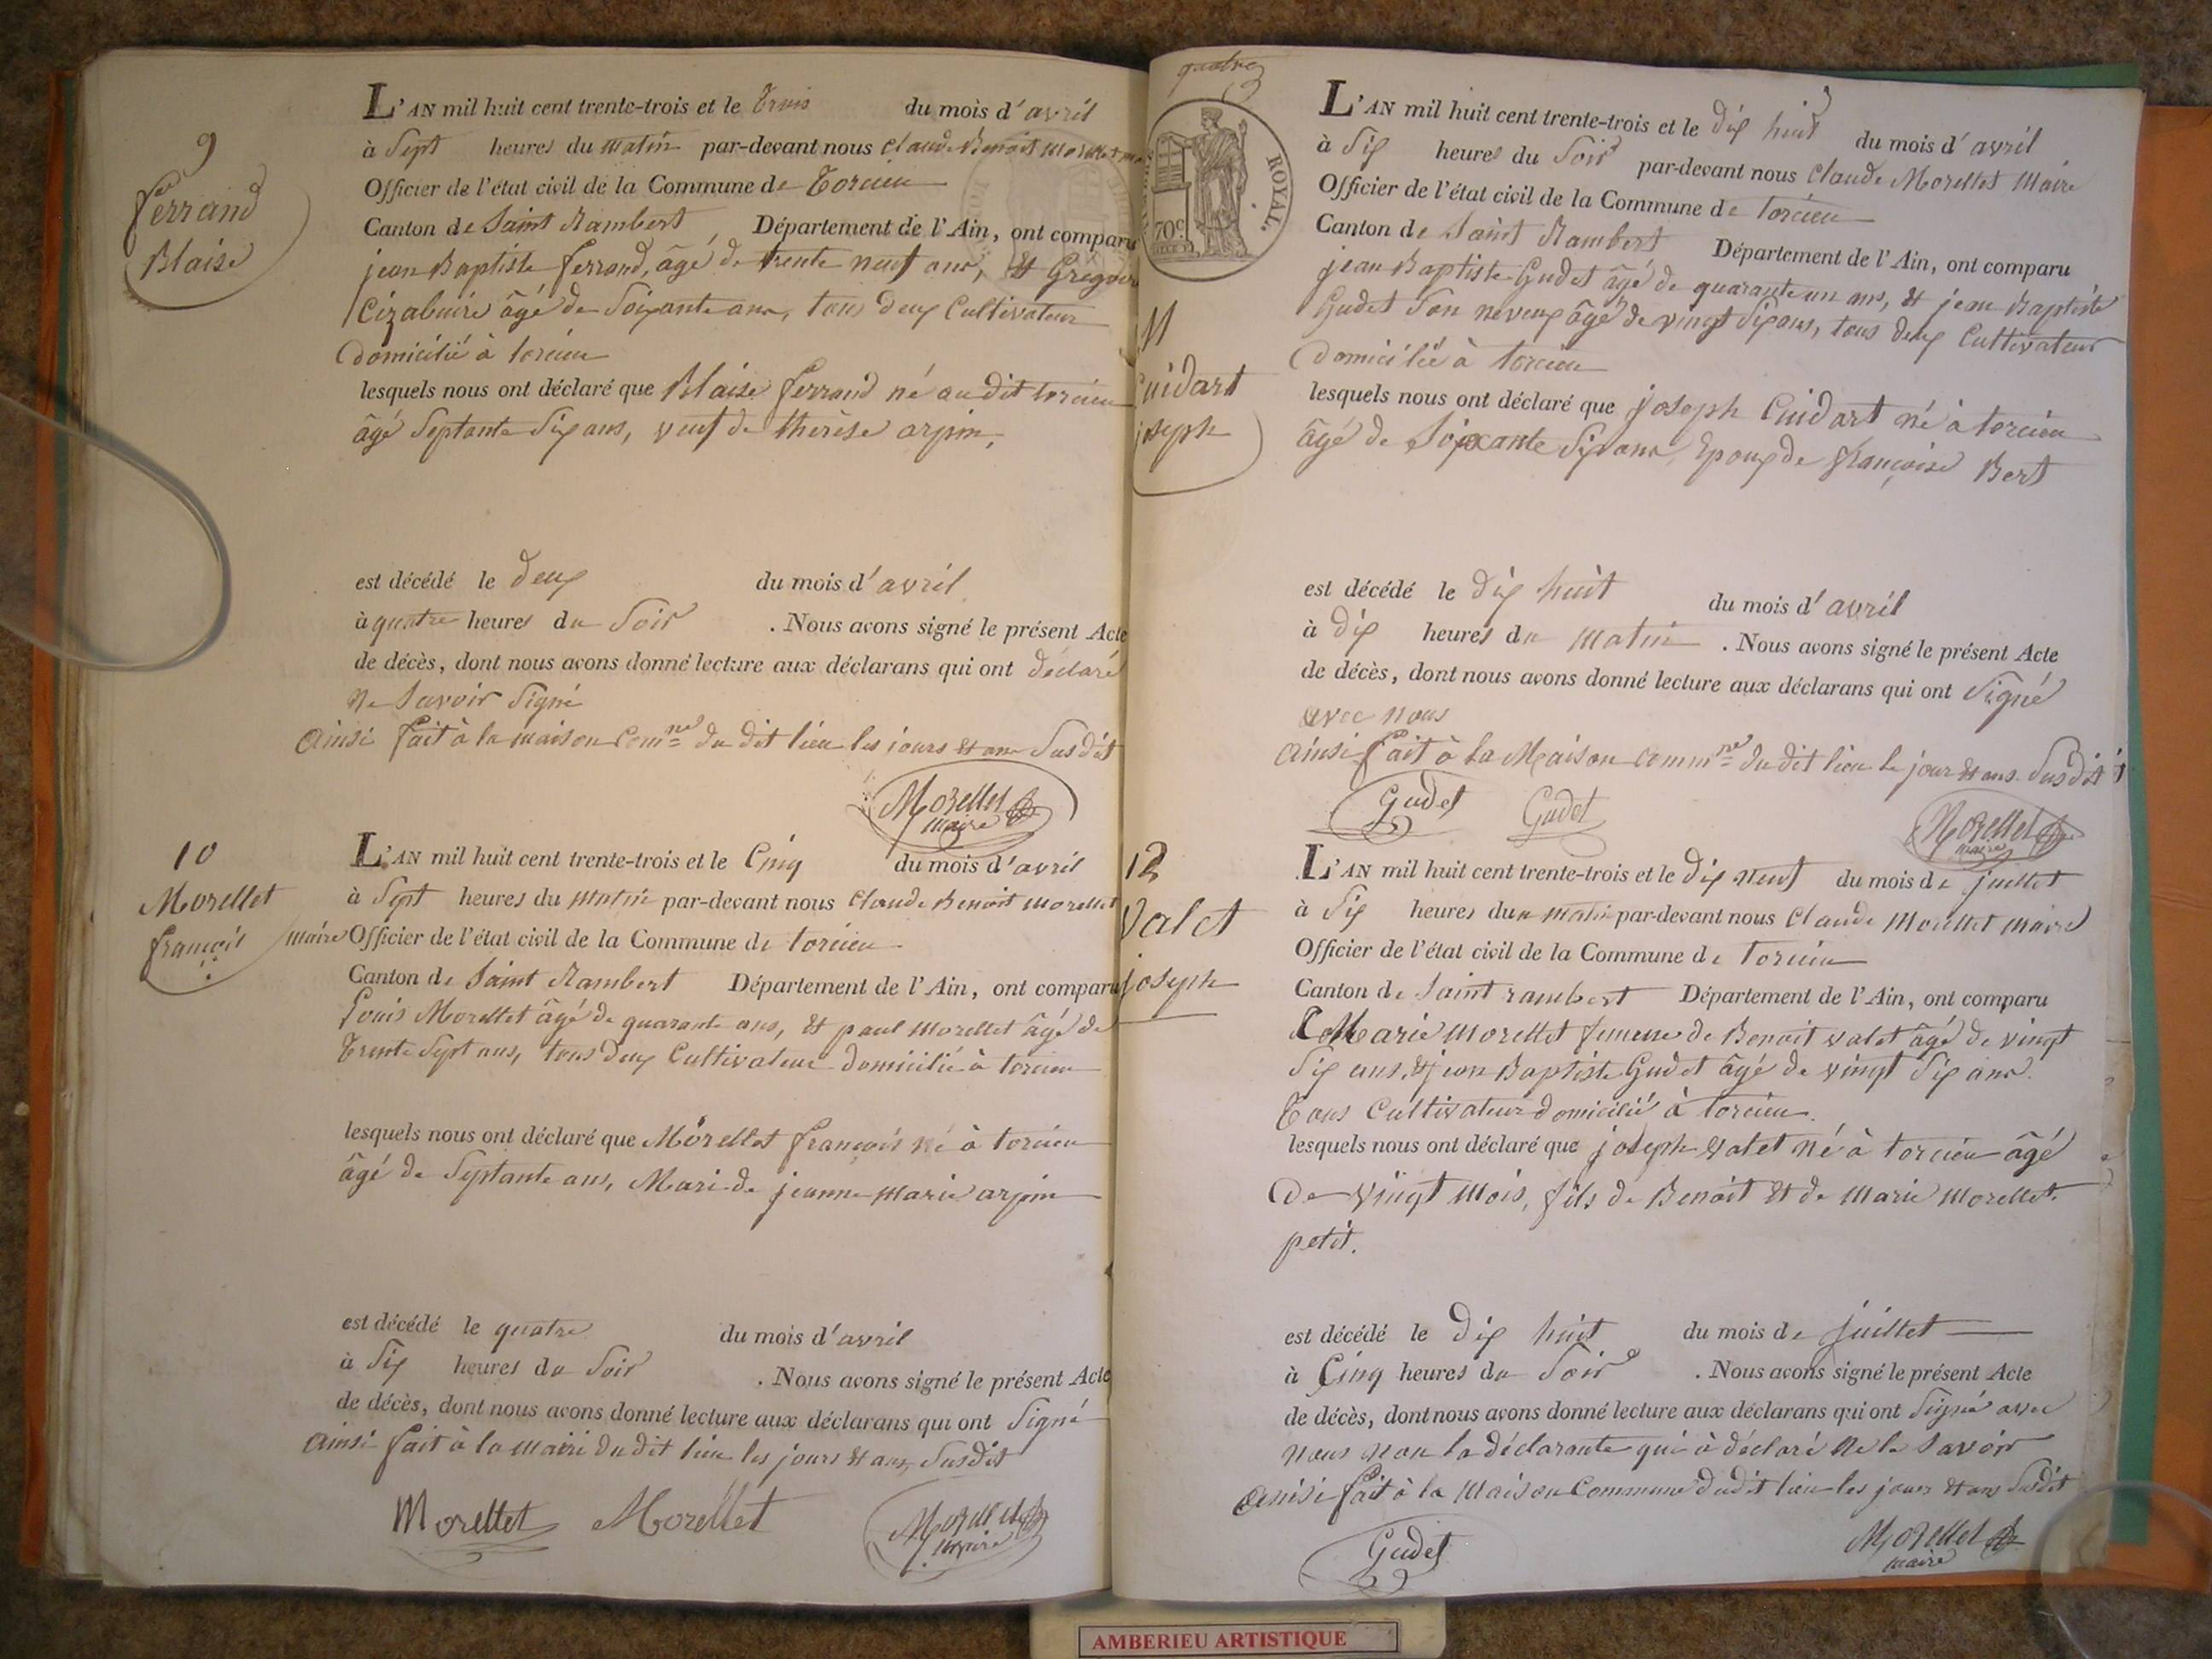 9
Ferrand
Blaise
L'AN mil huit cent trente-trois et le Trois du mois d'avril
à Sept heures du matin par-devant nous Claude Benoit Morellet
Officier de l'état civil de la Commune de Torcieu
Canton de Saint Rambert, Département de l'Ain, ont comparu
jean Baptiste ferrand, âgé de trente neuf ans, & Grégoire
Cizabuire âgé de Soixante ans, tous deux Cultivateur
domicilié à torcieu
lesquels nous ont déclaré que Blaise ferrand né au dit torcieu
âgé Septante Six ans, veuf de thérèse arpin,
est décédé le deux du mois d'avril
à quatre heures du Soir . Nous avons signé le présent Acte
de décès, dont nous avons donné lecture aux déclarans qui ont déclaré
ne Savoir Signé
Ainsi fait à la maison comne du dit lieu les jours & an Susdit
Morellet
maire
10
Morellet
françois
L'AN mil huit cent trente-trois et le Cinq du mois d'avril
à Sept heures du matin par-devant nous Claude Benoit Morellet
maire Officier de l'état civil de la Commune de torcieu
Canton de Saint Rambert Département de l'Ain, ont comparu
Louis Morellet âgé de quarante ans, & paul Morellet âgé de
Trente Sept ans, tous deux Cultivateur domicilié à torcieu
lesquels nous ont déclaré que Morellet françois né à torcieu
âgé de Septante ans, Mari de jeanne marie arpin
est décédé le quatre du mois d'avril
à Six heures du Soir . Nous avons signé le présent Acte
de décès, dont nous avons donné lecture aux déclarans qui ont Signé
Ainsi fait à la mairie du dit lieu les jours & an Susdit
Morellet Morellet Morellet
maire
quatre
ROYAL.
70 c.
11
Cuidart
joseph
L'AN mil huit cent trente-trois et le dix huit du mois d'avril
à Six heures du Soir par-devant nous Claude Morellet Maire
Officier de l'état civil de la Commune de torcieu
Canton de Saint Rambert Département de l'Ain, ont comparu
jean Baptiste Gudet âgé de quarante un ans, & jean Baptiste
Gudet Son neveux âgé de vingt Six ans, tous deux Cultivateur
domicilié à torcieu
lesquels nous ont déclaré que joseph Cuidart né à torcieu
âgé de Soixante Six ans Epoux de françoise Bert
est décédé le dix huit du mois d'avril
à dix heures du matin . Nous avons signé le présent Acte
de décès, dont nous avons donné lecture aux déclarans qui ont Signé
avec nous
Ainsi fait à la Maison commne du dit lieu le jour & ans Susdit
Gudet Gudet Morellet
maire
12
Valet
joseph
L'AN mil huit cent trente-trois et le dix neuf du mois de juillet
à Six heures du matin par-devant nous Claude Morellet maire
Officier de l'état civil de la Commune de torcieu
Canton de Saint rambert Département de l'Ain, ont comparu
Marie Morellet femme de Benoit valet âgé de vingt
Six ans, & jean Baptiste Gudet âgé de vingt Six ans
Tous Cultivateur domicilié à torcieu.
lesquels nous ont déclaré que joseph valet né à torcieu âgé
De vingt mois, fils de Benoit & de Marie Morellet
petit.
est décédé le dix huit du mois de juillet
à Cinq heures du Soir . Nous avons signé le présent Acte
de décès, dont nous avons donné lecture aux déclarans qui ont Signé avec
nous non la déclarante qui à déclaré ne le Savoir
Ainsi fait à la Maison Commune dudit lieu les jours & ans Susdit
Gudet Morellet
maire
AMBERIEU ARTISTIQUE